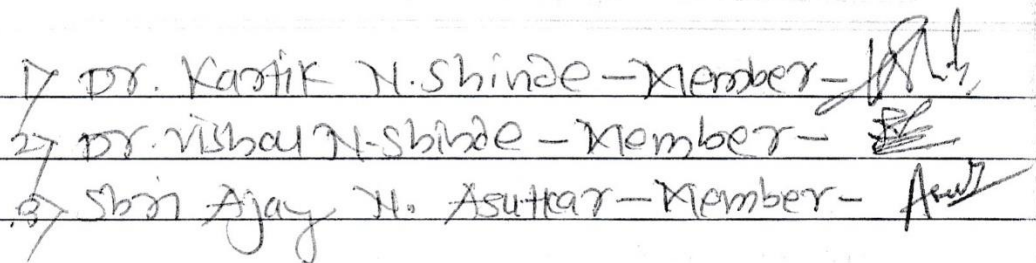 1) Dr. Kartik N. Shinde - Member -
2) Dr. Vishal N. Shinde - Member -
3) Shri Ajay N. Asutkar - Member -